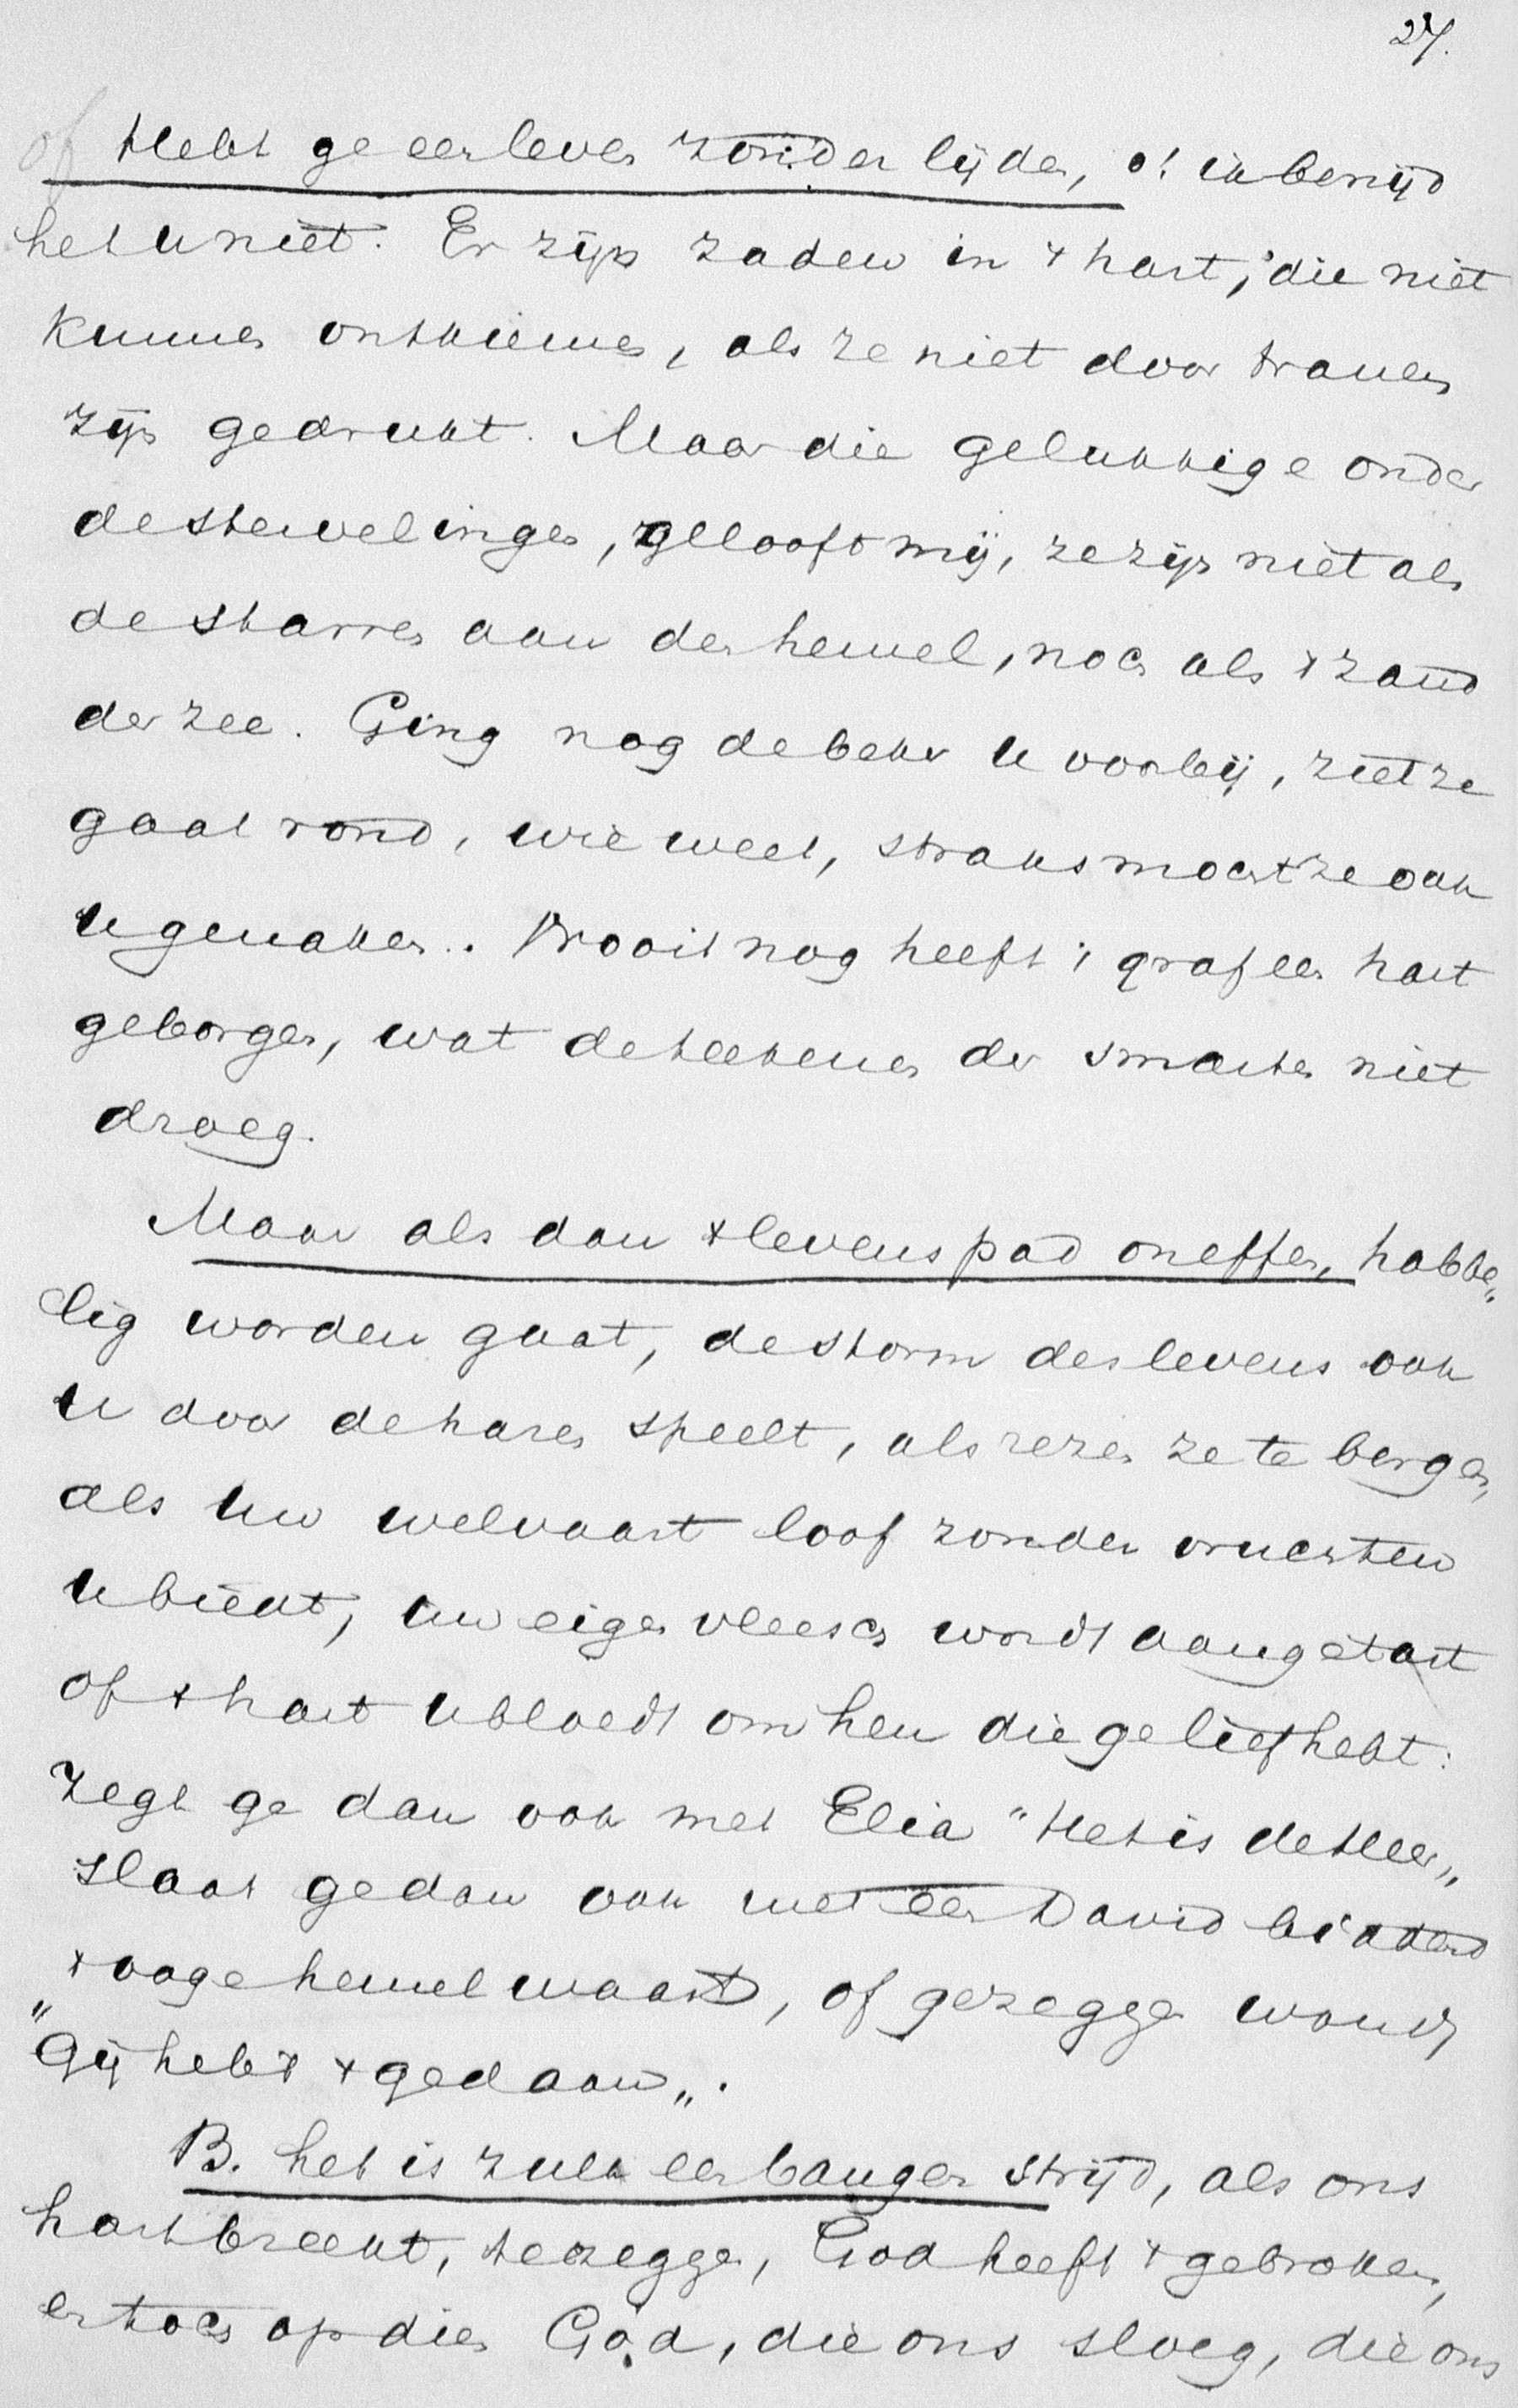 27.
of Hebt ge een leven zonder lijden, o! ik benijd
het u niet. Er zijn zaden in 't hart, die niet
kunnen ontkiemen, als ze niet door tranen
zijn gedrukt. Maar die gelukkige onder
de stervelingen, gelooft mij, ze zijn niet als
de starren aan den hemel, noch als 't zand
der zee. Ging nog de beker u voorbij, ziet ze
gaat rond, wie weet, straks mocht ze ook
u genaken. Nooit nog heeft 't graf een hart
geborgen, wat de teekenen der smarten niet
droeg.
Maar als dan 't levenspad oneffen, hobbe„
lig worden gaat, de storm des levens ook
u door de haren speelt, als rezen ze te bergen,
als uw welvaart loof zonder vruchten
u biedt, uw eigen vleesch wordt aangetast
of 't hart u bloedt om hen die ge liefhebt:
Zegt ge dan ook met Elia "Het is de Heer„
Slaat ge dan ook met een David biddend
't ooge hemelwaart, of ge zeggen woudt
„Gij hebt 't gedaan„.
B. het is zulk een bangen strijd, als ons
hart breekt, te zeggen, God heeft 't gebroken,
en toch op dien God, die ons sloeg, die ons